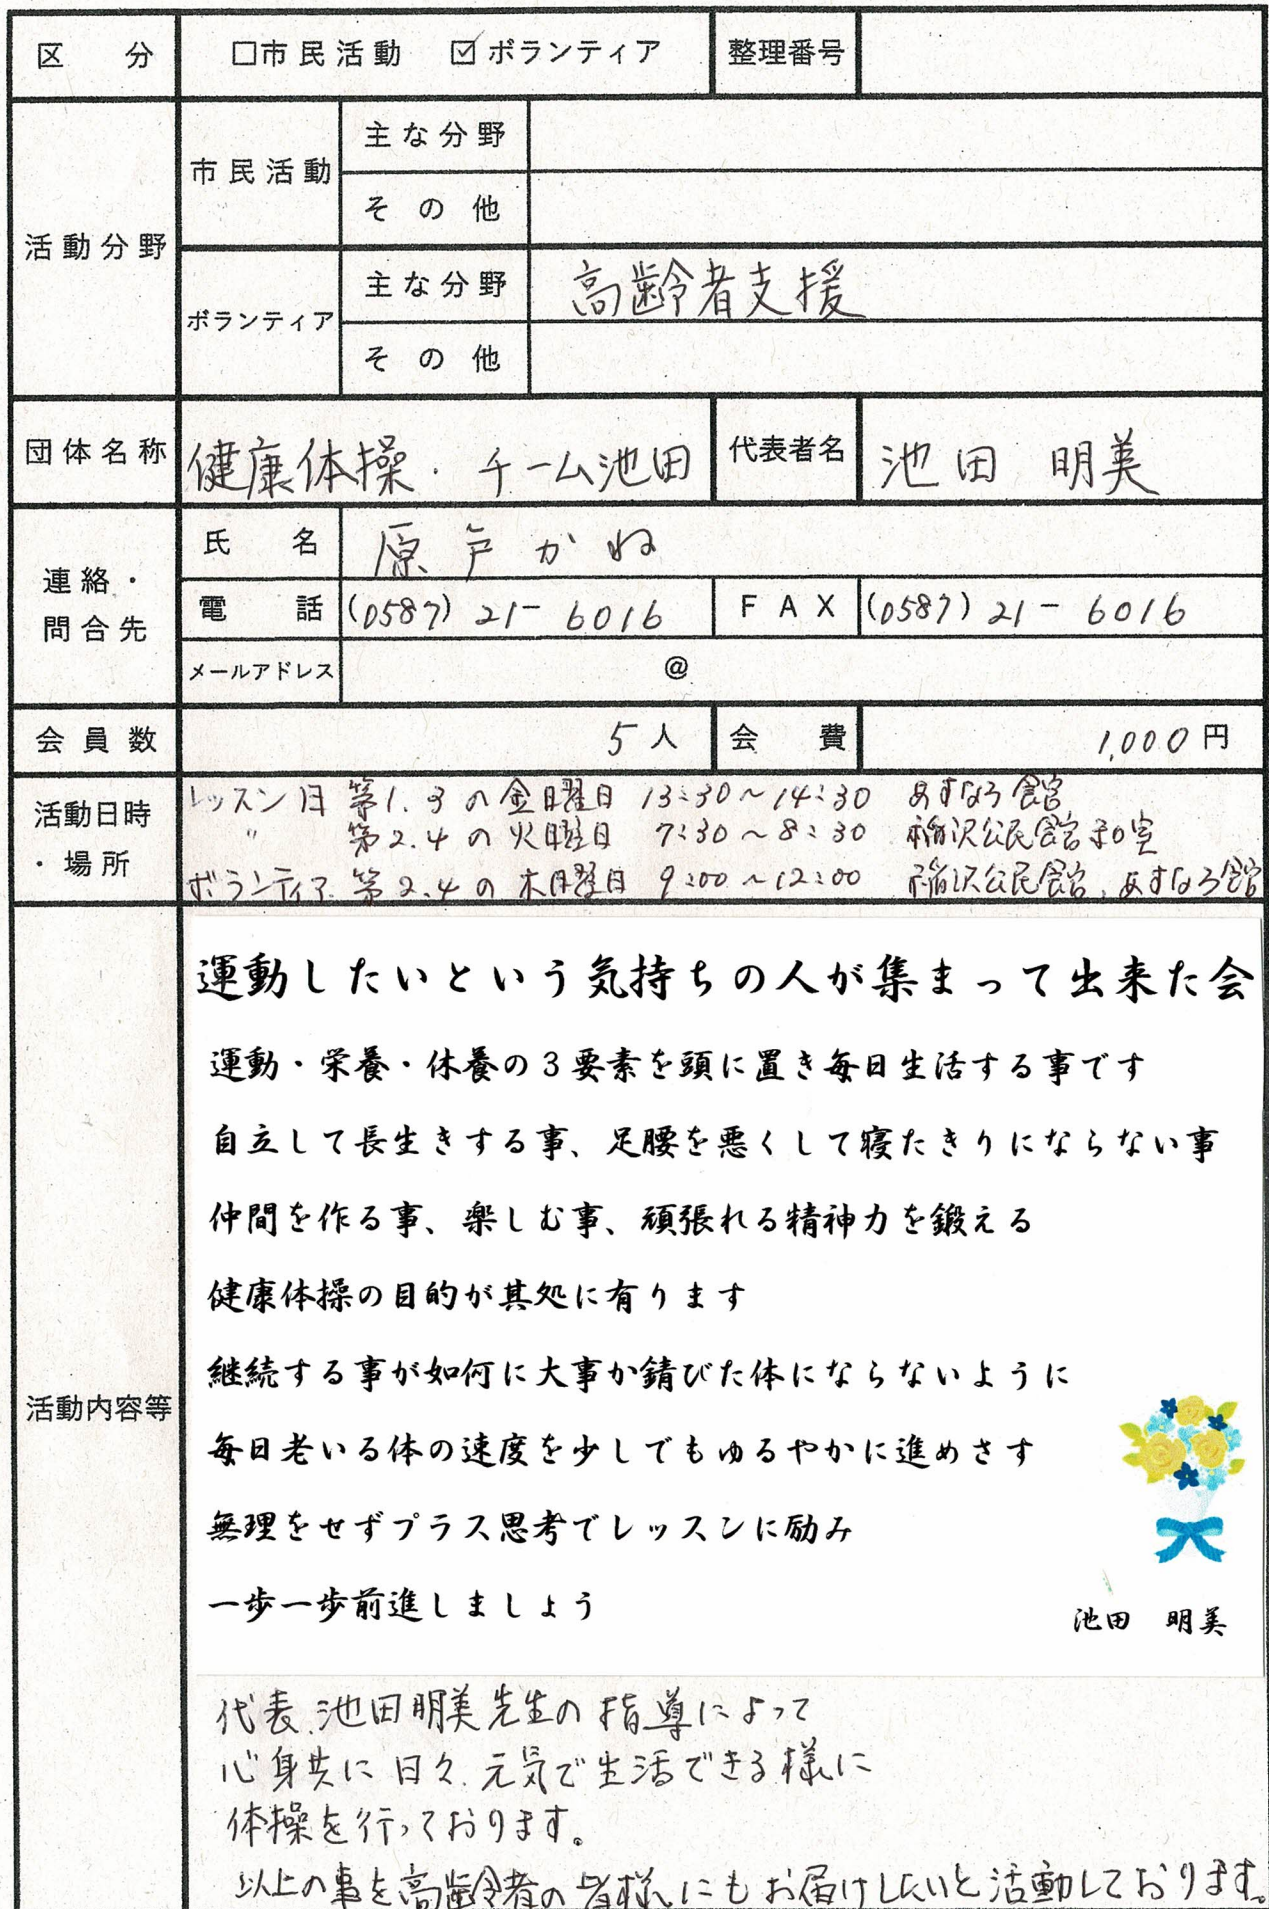 区 分 □市民活動 ☑ボランティア 整理番号
活動分野 市民活動 主な分野
その他
ボランティア 主な分野 高齢者支援
その他
団体名称 健康体操・チーム池田 代表者名 池田 明美
連絡・問合先 氏 名 原戸かね
電 話 (0587) 21-6016 FAX (0587) 21-6016
メールアドレス @
会員数 5人 会 費 1,000円
活動日時・場所
レッスン日 第1.3の金曜日 13:30~14:30 あすなろ館
〃 第2.4の火曜日 7:30~8:30 稲沢公民館和室
ボランティア 第2.4の木曜日 9:00~12:00 稲沢公民館、あすなろ館
活動内容等
運動したいという気持ちの人が集まって出来た会
運動・栄養・休養の3要素を頭に置き毎日生活する事です
自立して長生きする事、足腰を悪くして寝たきりにならない事
仲間を作る事、楽しむ事、頑張れる精神力を鍛える
健康体操の目的が其処に有ります
継続する事が如何に大事か錆びた体にならないように
毎日老いる体の速度を少しでもゆるやかに進めさす
無理をせずプラス思考でレッスンに励み
一歩一歩前進しましょう
池田 明美
代表、池田明美先生の指導によって
心身共に日々、元気で生活できる様に
体操を行っております。
以上の事を高齢者の皆様にもお届けしたいと活動しております。